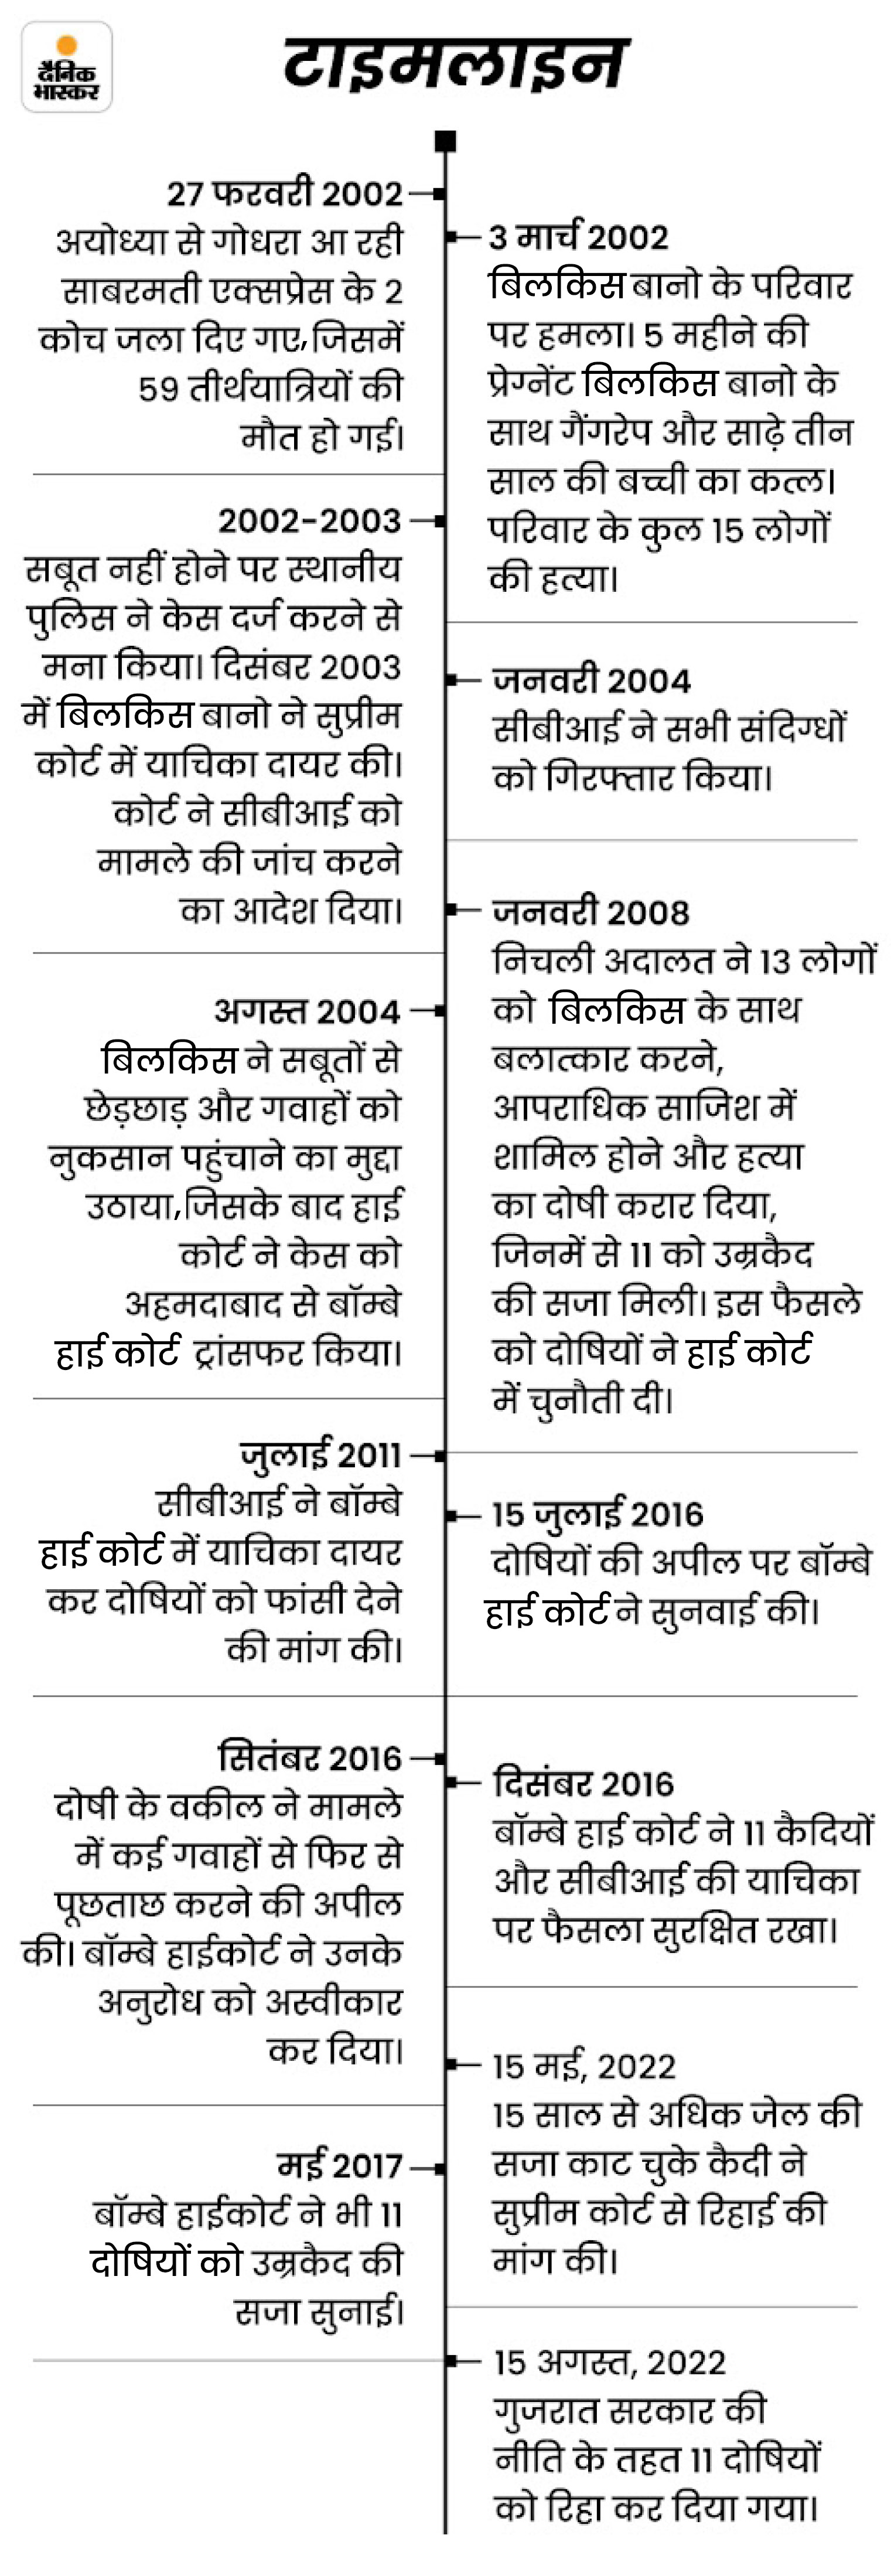 दैनिक
भास्कर
टाइमलाइन
27 फरवरी 2002
अयोध्या से गोधरा आ रही
साबरमती एक्सप्रेस के 2
कोच जला दिए गए, जिसमें
59 तीर्थयात्रियों की
मौत हो गई।
3 मार्च 2002
बिलकिस बानो के परिवार
पर हमला। 5 महीने की
प्रेग्नेंट बिलकिस बानो के
साथ गैंगरेप और साढ़े तीन
साल की बच्ची का कत्ल।
परिवार के कुल 15 लोगों
की हत्या।
2002-2003
सबूत नहीं होने पर स्थानीय
पुलिस ने केस दर्ज करने से
मना किया। दिसंबर 2003
में बिलकिस बानो ने सुप्रीम
कोर्ट में याचिका दायर की।
कोर्ट ने सीबीआई को
मामले की जांच करने
का आदेश दिया।
जनवरी 2004
सीबीआई ने सभी संदिग्धों
को गिरफ्तार किया।
अगस्त 2004
बिलकिस ने सबूतों से
छेड़छाड़ और गवाहों को
नुकसान पहुंचाने का मुद्दा
उठाया, जिसके बाद हाई
कोर्ट ने केस को
अहमदाबाद से बॉम्बे
हाई कोर्ट ट्रांसफर किया।
जनवरी 2008
निचली अदालत ने 13 लोगों
को बिलकिस के साथ
बलात्कार करने,
आपराधिक साजिश में
शामिल होने और हत्या
का दोषी करार दिया,
जिनमें से 11 को उम्रकैद
की सजा मिली। इस फैसले
को दोषियों ने हाई कोर्ट
में चुनौती दी।
जुलाई 2011
सीबीआई ने बॉम्बे
हाई कोर्ट में याचिका दायर
कर दोषियों को फांसी देने
की मांग की।
15 जुलाई 2016
दोषियों की अपील पर बॉम्बे
हाई कोर्ट ने सुनवाई की।
सितंबर 2016
दोषी के वकील ने मामले
में कई गवाहों से फिर से
पूछताछ करने की अपील
की। बॉम्बे हाईकोर्ट ने उनके
अनुरोध को अस्वीकार
कर दिया।
दिसंबर 2016
बॉम्बे हाई कोर्ट ने 11 कैदियों
और सीबीआई की याचिका
पर फैसला सुरक्षित रखा।
मई 2017
बॉम्बे हाईकोर्ट ने भी 11
दोषियों को उम्रकैद की
सजा सुनाई।
15 मई, 2022
15 साल से अधिक जेल की
सजा काट चुके कैदी ने
सुप्रीम कोर्ट से रिहाई की
मांग की।
15 अगस्त, 2022
गुजरात सरकार की
नीति के तहत 11 दोषियों
को रिहा कर दिया गया।